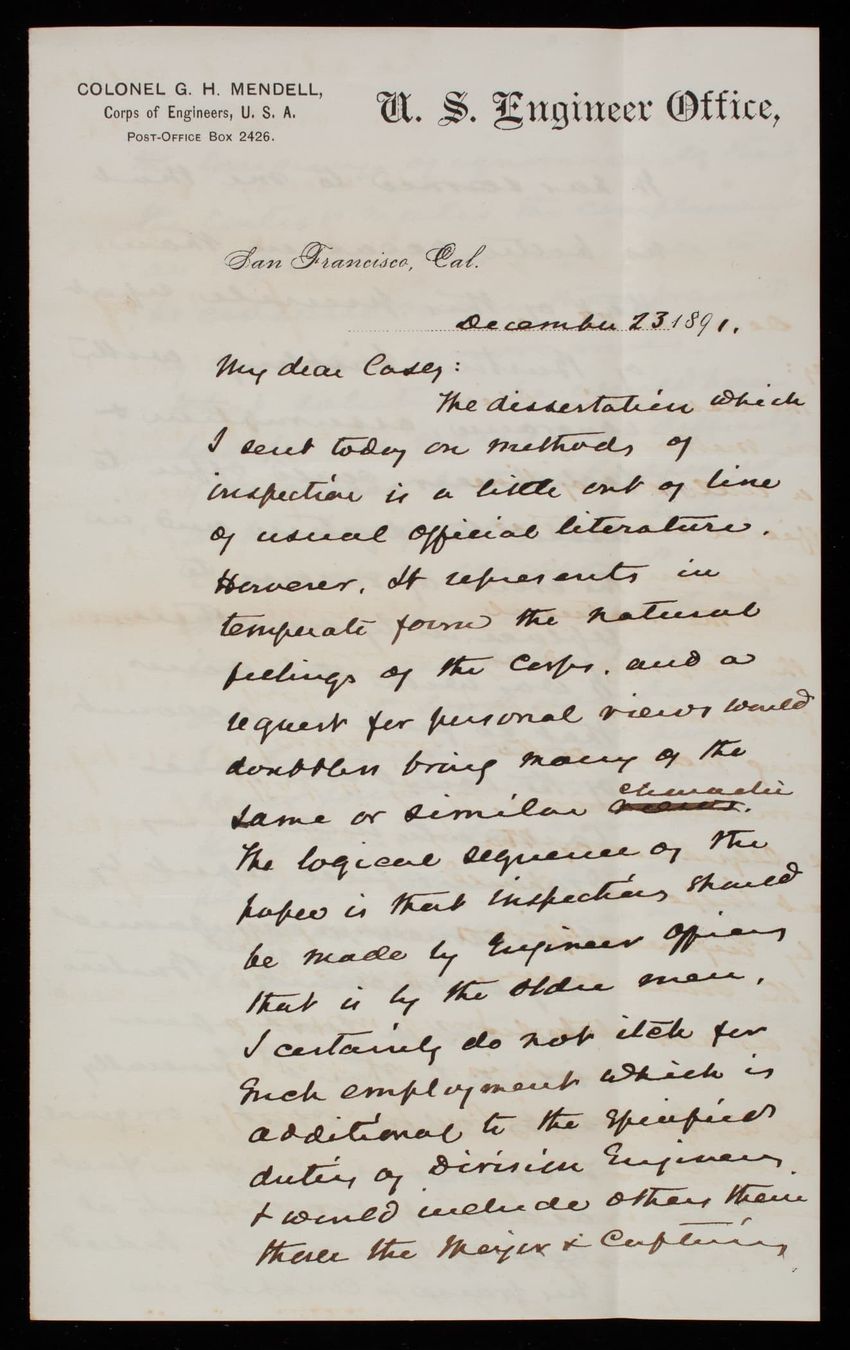 COLONEL G. H. MENDELL,
Corps of Engineers, U. S. A.
POST-OFFICE BOX 2426.
U. S. Engineer Office,
San Francisco, Cal.
December 23 1891.
My dear Casey:
The dissertation which
I sent today on methods of
inspection is a little out of line
of usual official literature.
However, It represents in
temperate form the natural
feelings of the Corps. and a
request for personal views would
doubtless bring many of the
same or similar character
views.
The logical sequence of the
paper is that inspections should
be made by Engineer Officers
that is by the older men.
I certainly do not itch for
such employment which is
additional to the specified
duties of Division Engineers
& would include others than
those the Major & Captains